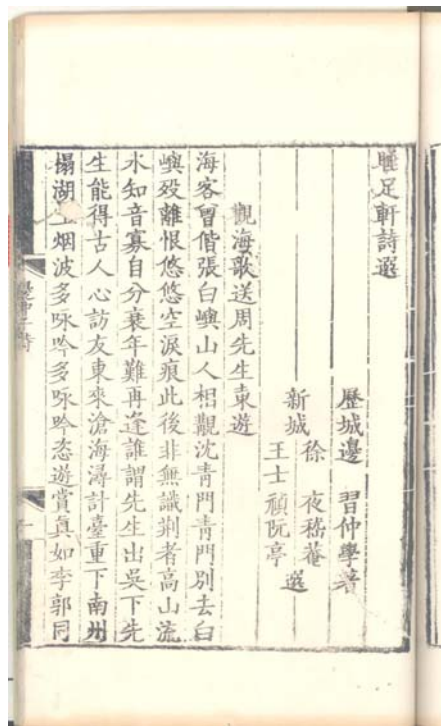 睡足軒詩選
歷城邊習仲學著
新城徐夜嵇菴
王士禎阮亭選
觀海歌送周先生東遊
海客曾偕張白嶼山人相觀沈青門青門別去白
嶼歿離恨悠悠空淚痕此後非無識荆者高山流
水知音寡自分衰年難再逢誰謂先生出吳下先
生能得古人心訪友東來滄海潯計臺重下南州
榻湖上烟波多咏吟多咏吟恣遊賞真如李郭同